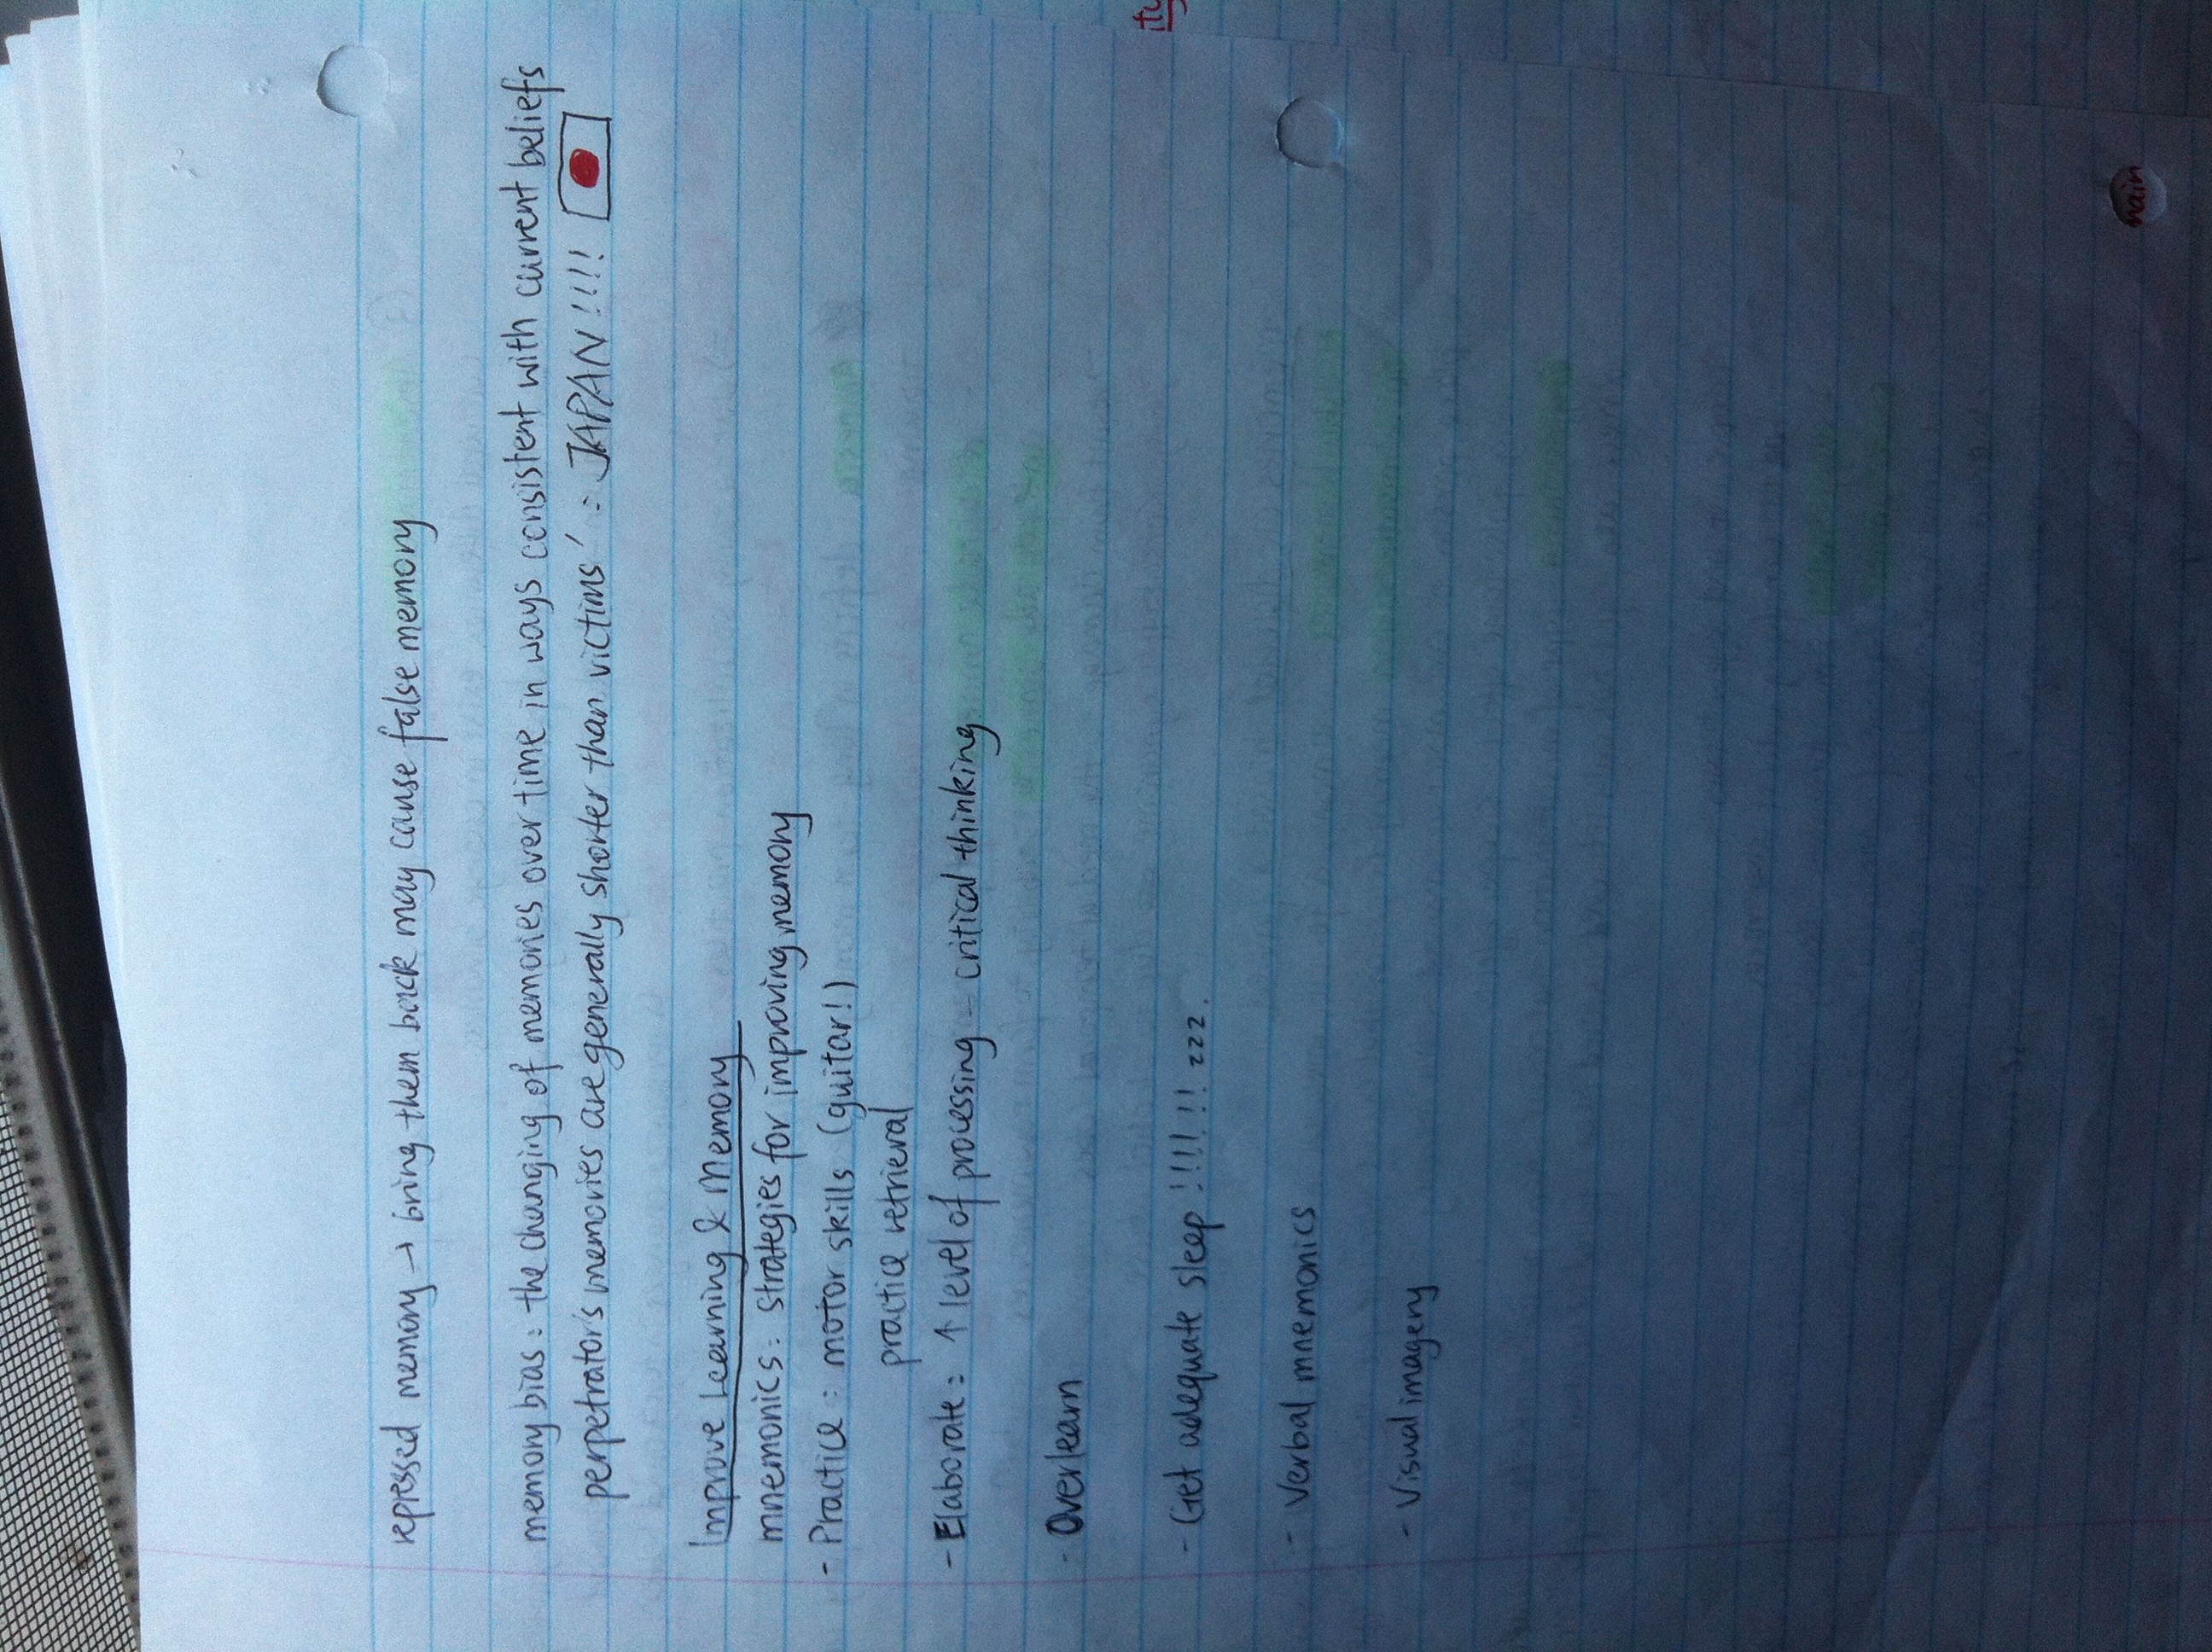 repressed memory → bring them back may cause false memory
memory bias : the changing of memories over time in ways consistent with current beliefs
perpetrator's memories are generally shorter than victims' : JAPAN!!!!
Improve Learning & Memory
mnemonics : strategies for improving memory
- Practice : motor skills (guitar!)
practice retrieval
- Elaborate : ↑ level of processing - critical thinking
- Overlearn
- Get adequate sleep !!!!!! zzz.
- Verbal mnemonics
- Visual imagery